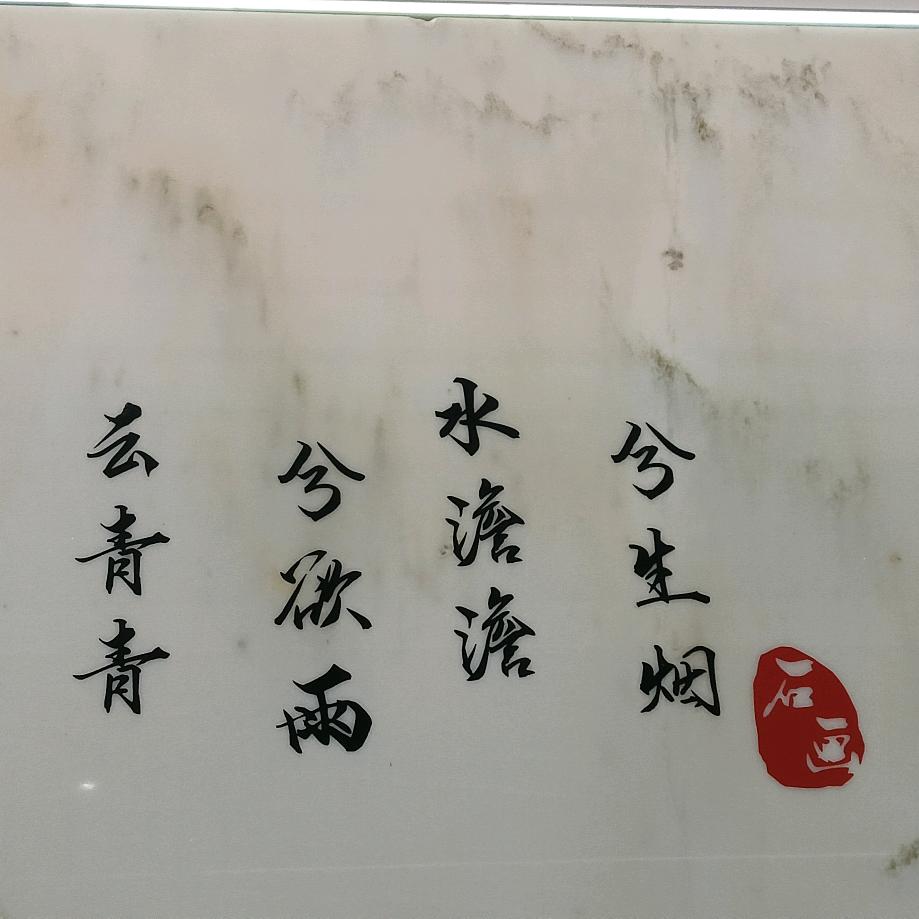 云青青
兮欲雨
水澹澹
兮生烟
石画